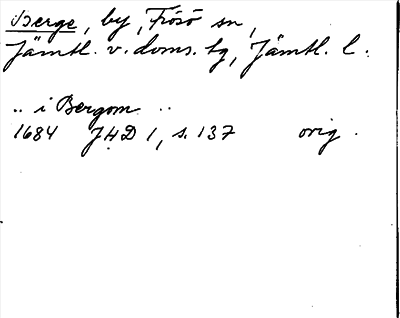 Berge, by, Frösö sn,
Jämtl. v. doms. tg, Jämtl. l.
.. i Bergom ..
1684 JHD 1, s. 137 orig.